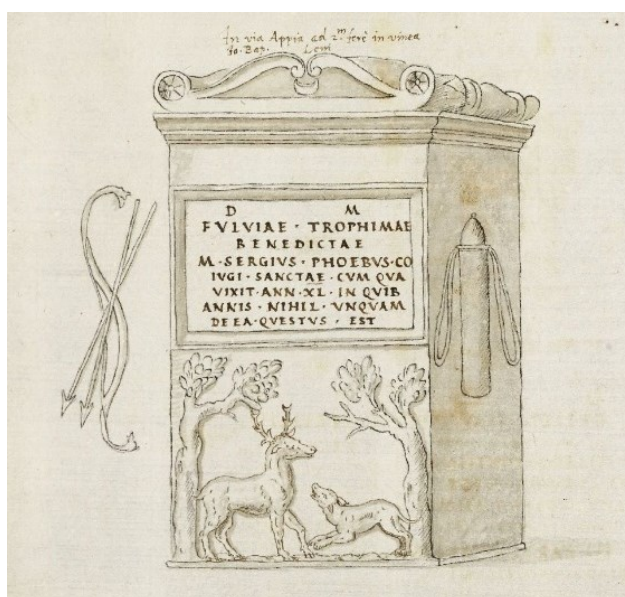 In via Appia ad 2.m ferè in vinea
Io. Bap. Leni
D M
FVLVIAE · TROPHIMAE
BENEDICTAE
M · SERGIVS · PHOEBVS · CO
IVGI · SANCTAE · CVM QVA
VIXIT · ANN · XL · IN QVIB
ANNIS · NIHIL · VNQVAM
DE EA · QVESTVS · EST